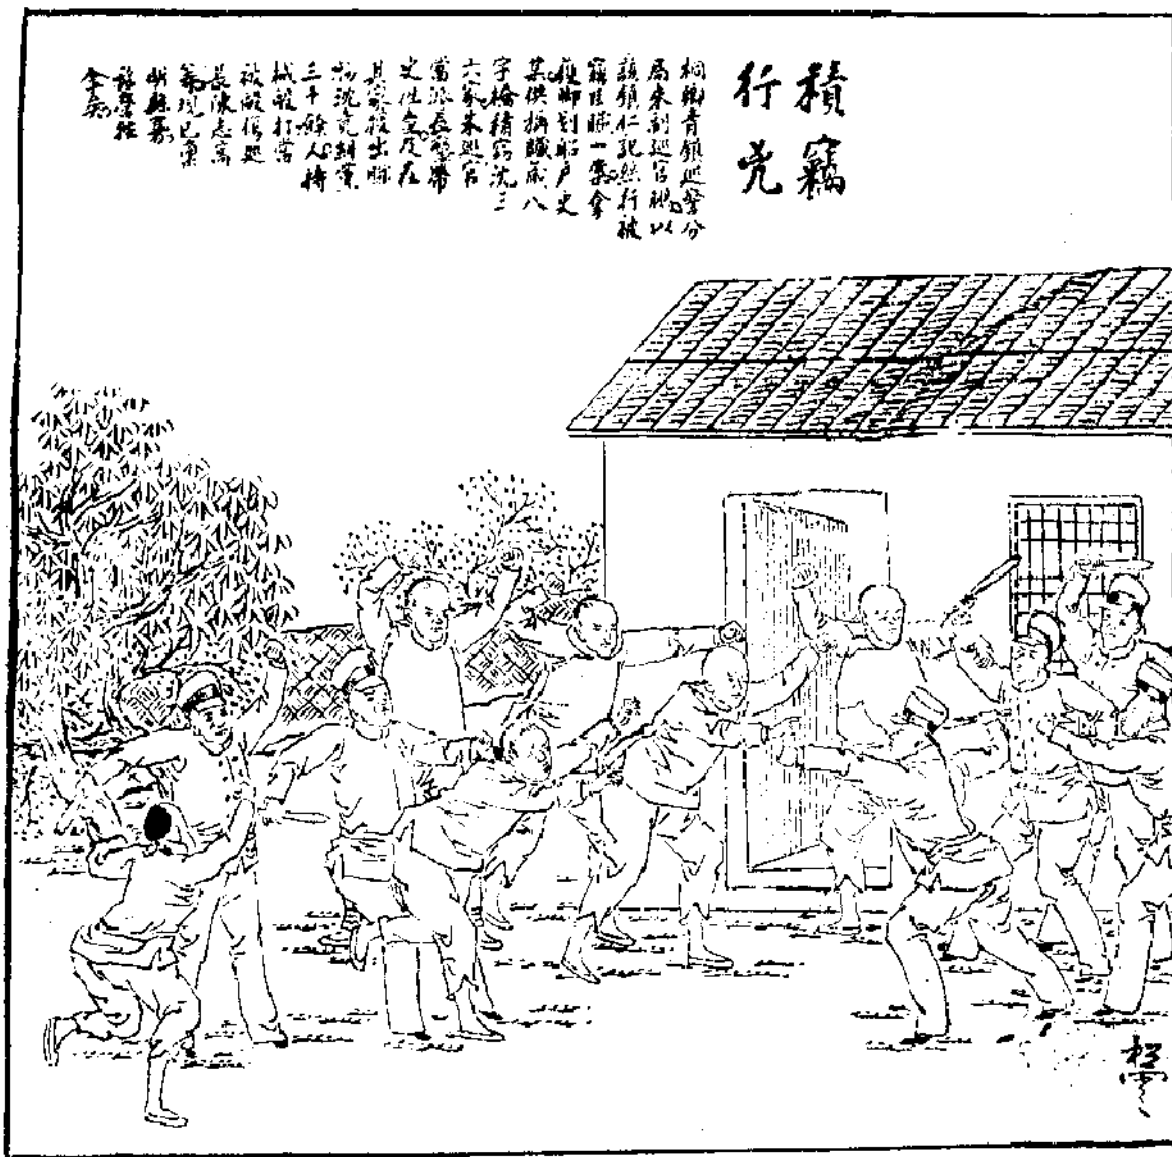 積竊
行兇
桐鄉青鎮巡警分
局朱副巡官聯以
該鎮仁記絲行被
竊巨贓一案拿
獲脚划船戶史
某供稱贓藏八
字橋積竊沈三
六家朱巡官
當派長警帶
史往查及在
其家搜出贓
物沈竟糾黨
三十餘人持
械毆打當
被毆傷巡
長陳志高
等現已稟
明縣署
拿究
松雲